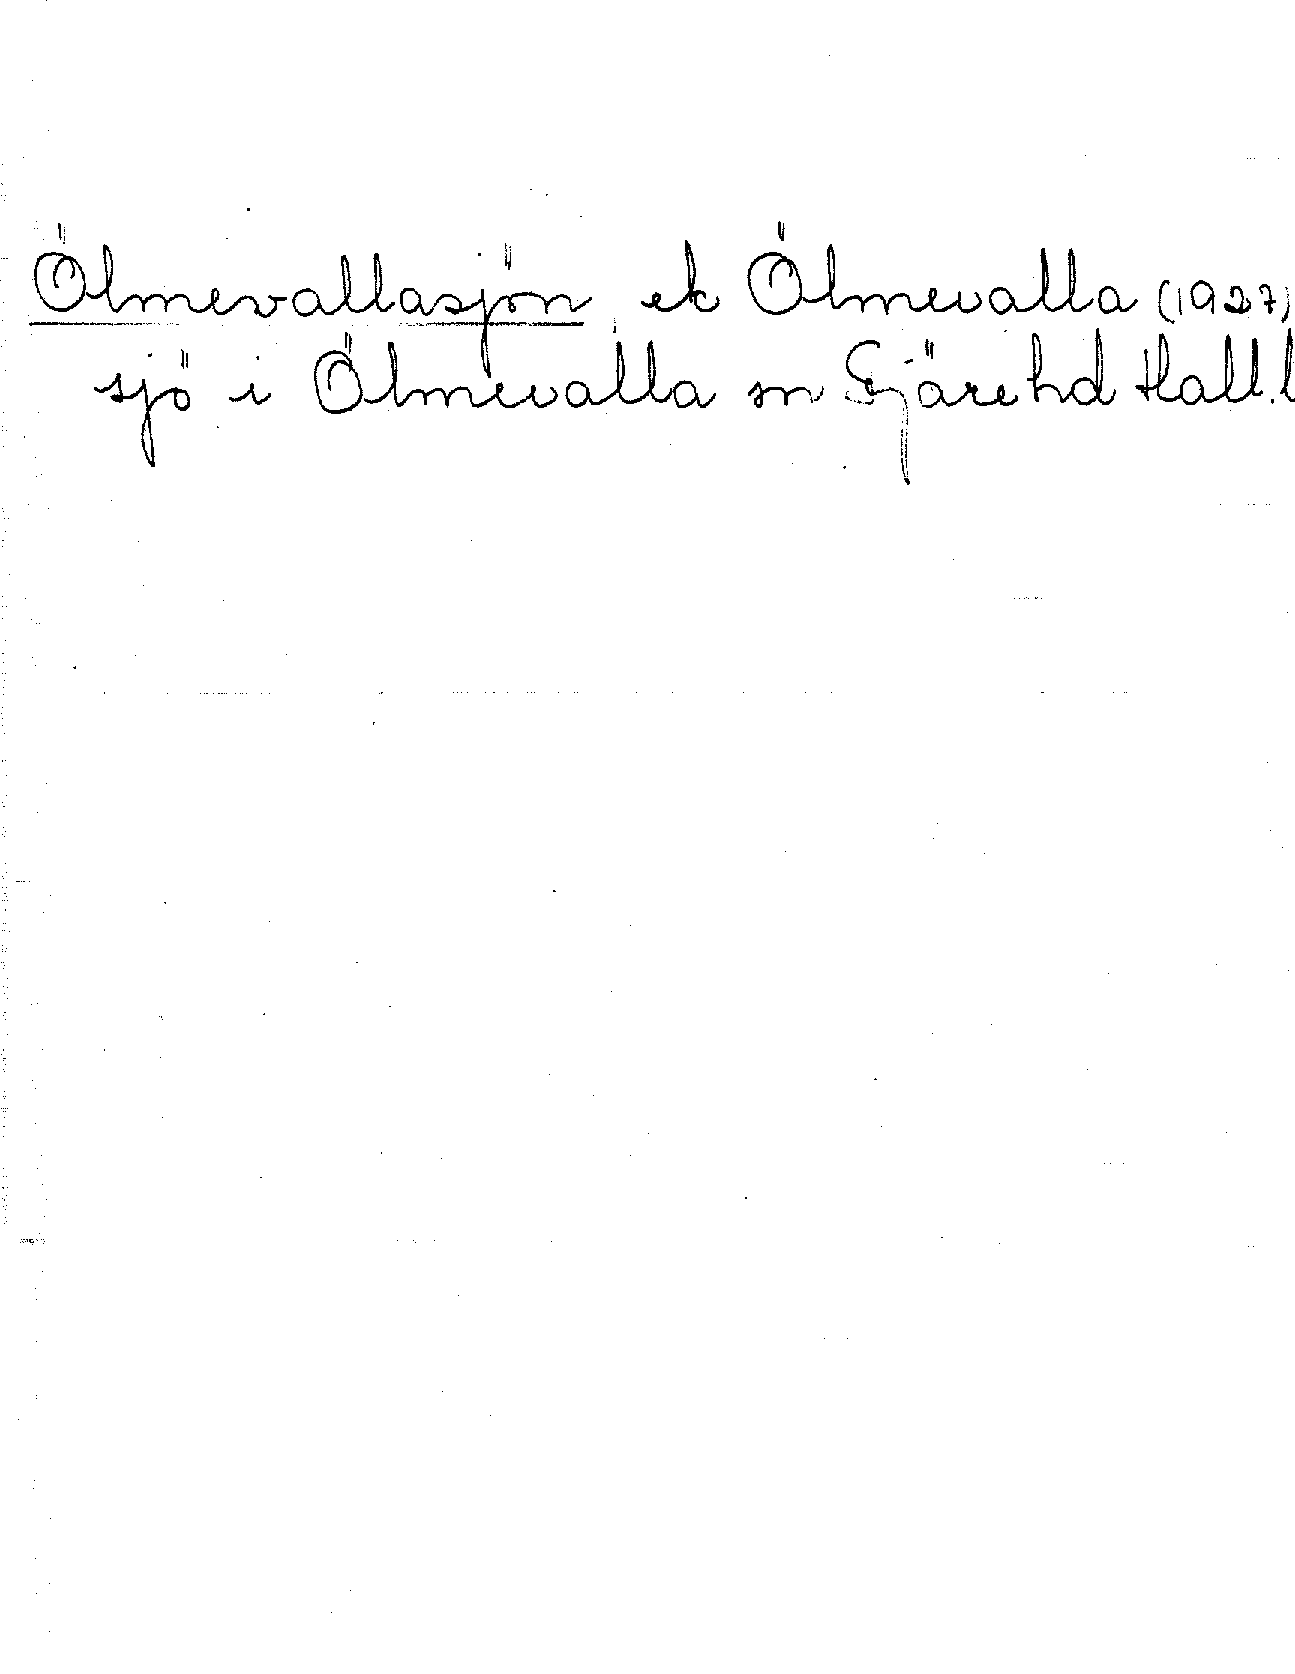 Ölmevallasjön ek Ölmevalla (1927)
sjö i Ölmevalla sn Fjäre hd Hall.l